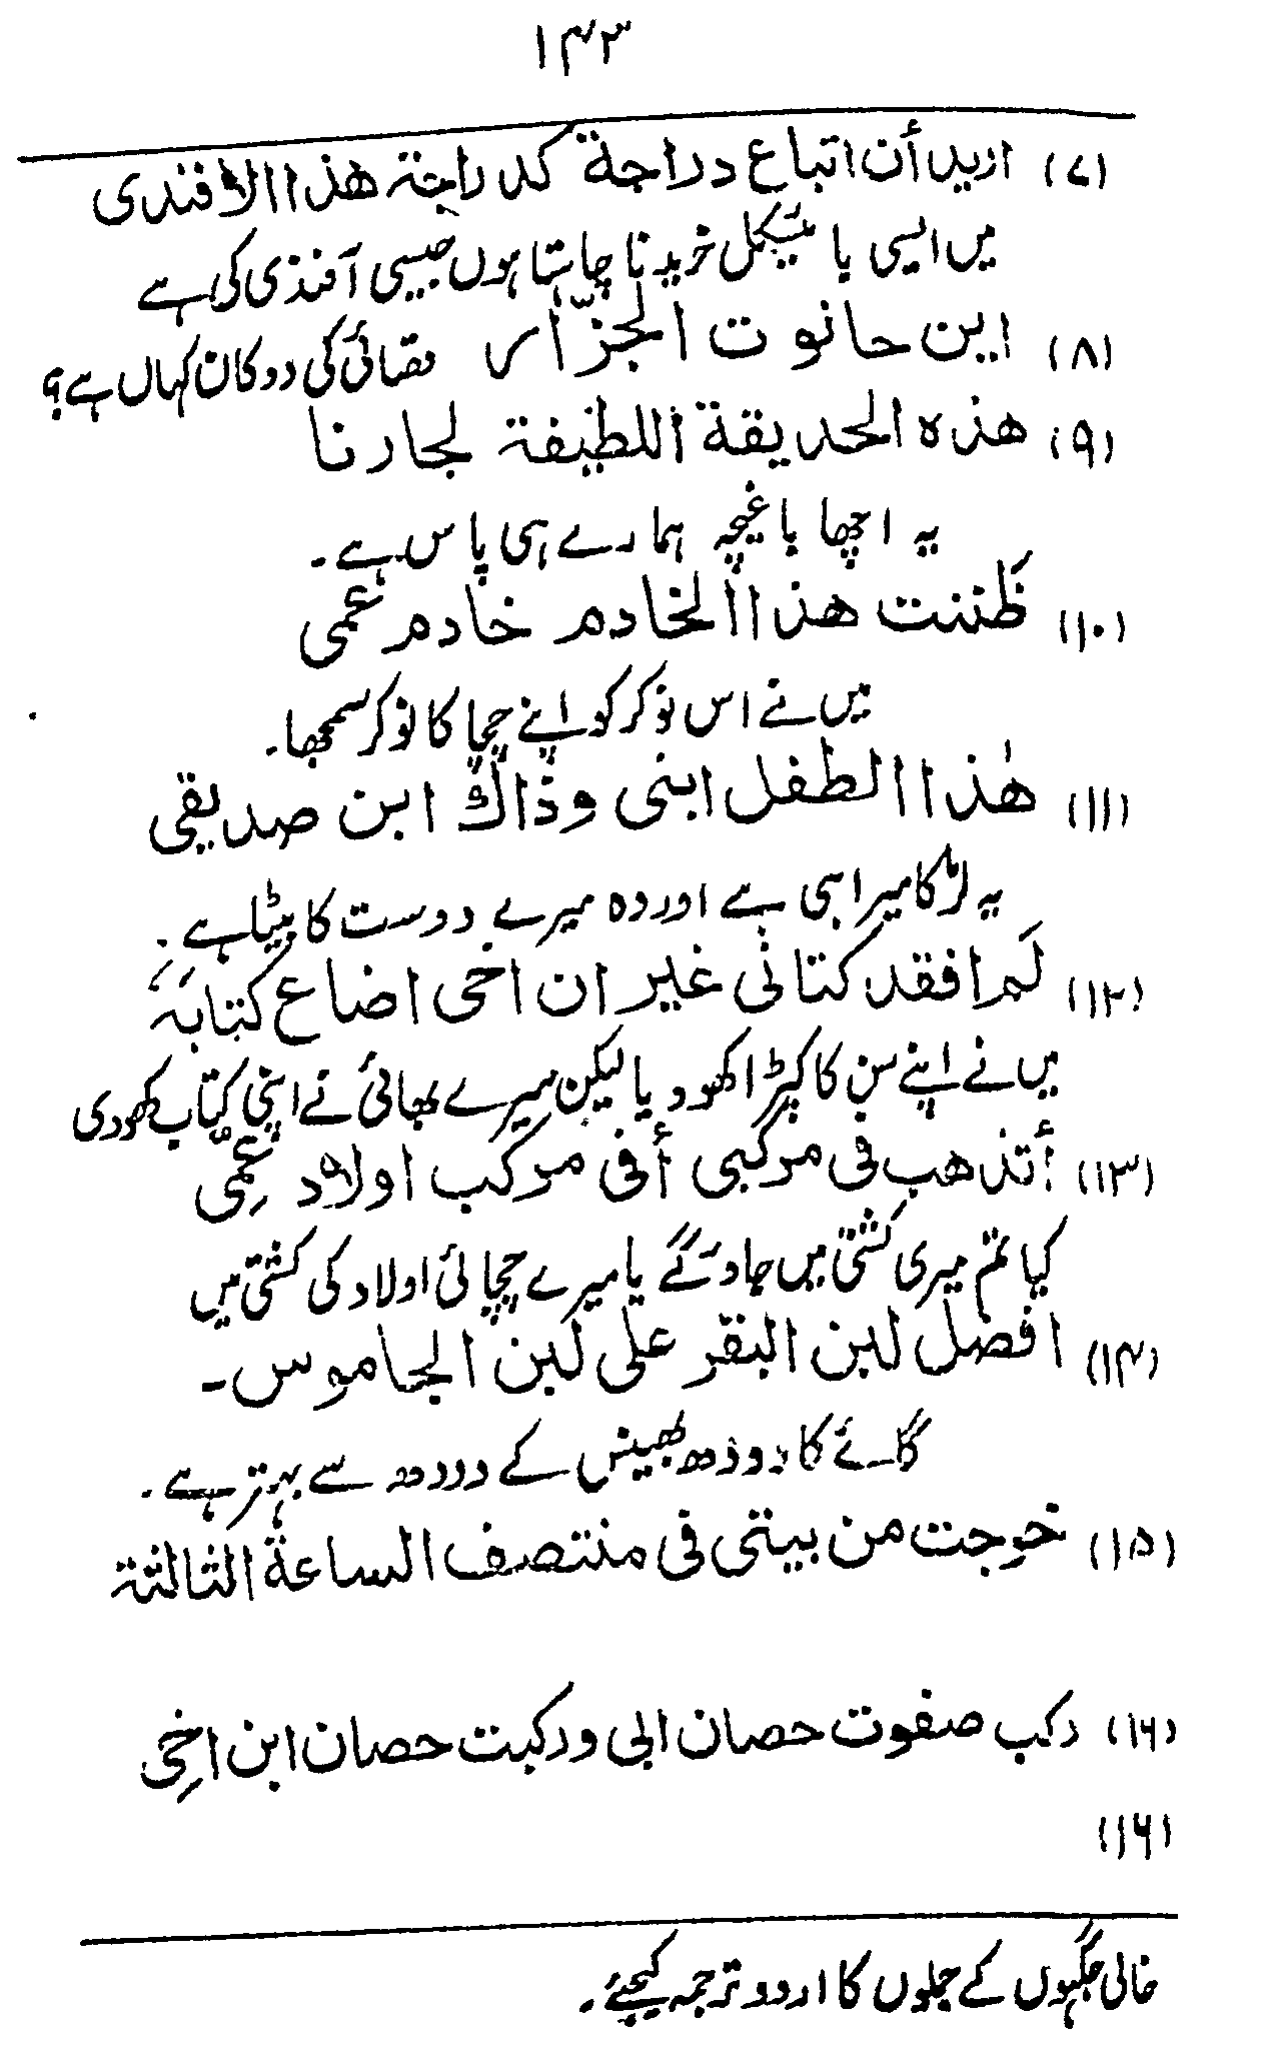 ۱۴۳
(۷) ارید أن اتباع دراجة کدراجة هذا الافندی
میں ایسی بائیسکل خریدنا چاہتا ہوں جیسی آفندی کی ہے
(۸) این حانوت الجزّار قصائی کی دوکان کہاں ہے؟
(۹) هذه الحدیقة اللطیفة لجارنا
یہ اچھا باغیچہ ہمارے ہی پاس ہے۔
(۱۰) ظَننت هذا الخادم خادم عمی
میں نے اس نوکر کو اپنے چچا کا نوکر سمجھا۔
(۱۱) هٰذا الطفل ابنی وذاك ابن صدیقی
یہ لڑکا میرا ہی ہے اور وہ میرے دوست کا بیٹا ہے۔
(۱۲) لَم افقد کتانی غیر ان اخی اضاع کتابہٗ
میں نے اپنے سن کا کپڑا کھو دیا لیکن میرے بھائی نے اپنی کتاب کھودی
(۱۳) أتذهب فی مرکبی أفی مرکب اولاد عِمّی
کیا تم میری کشتی میں جاؤ گے یا میرے چچا ئی اولاد کی کشتی میں
(۱۴) افضل لبن البقر علی لبن الجاموس۔
گائے کا دودھ بھینس کے دودھ سے بہتر ہے۔
(۱۵) خرجت من بیتی فی منتصف الساعة الثالثة
(۱۶) رکب صفوت حصان ابی ورکبت حصان ابن اخِی
(۱۶)
خالی جگہوں کے جملوں کا اردو ترجمہ کیجئے۔